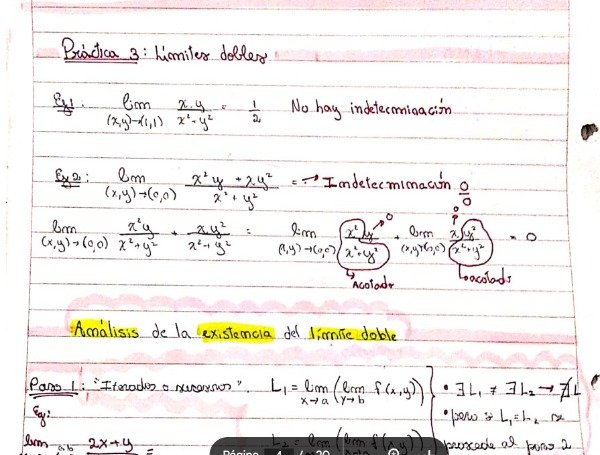 Práctica 3: Límites dobles
Ej 1: lim (x,y)→(1,1) x.y / x²+y² = 1/2 No hay indeterminación
Ej 2: lim (x,y)→(0,0) x²y + x.y² / x²+y² = → Indeterminación 0/0
lim (x,y)→(0,0) x²y / x²+y² + x.y² / x²+y² = lim (x,y)→(0,0) x² y / x²+y² → 0 + lim (x,y)→(0,0) x y² / x²+y² = 0
↳ Acotado ↳ acotado
Análisis de la existencia del límite doble
Paso 1: "Iterados o sucesivos". L₁ = lim x→a (lim y→b f(x,y)) • ∃L₁ ≠ ∃L₂ → ∄L
Ej: • pero si L₁=L₂ se
lim 2x+y = L₂ = lim (lim f(x,y)) procede al paso 2
Página 4 / 20